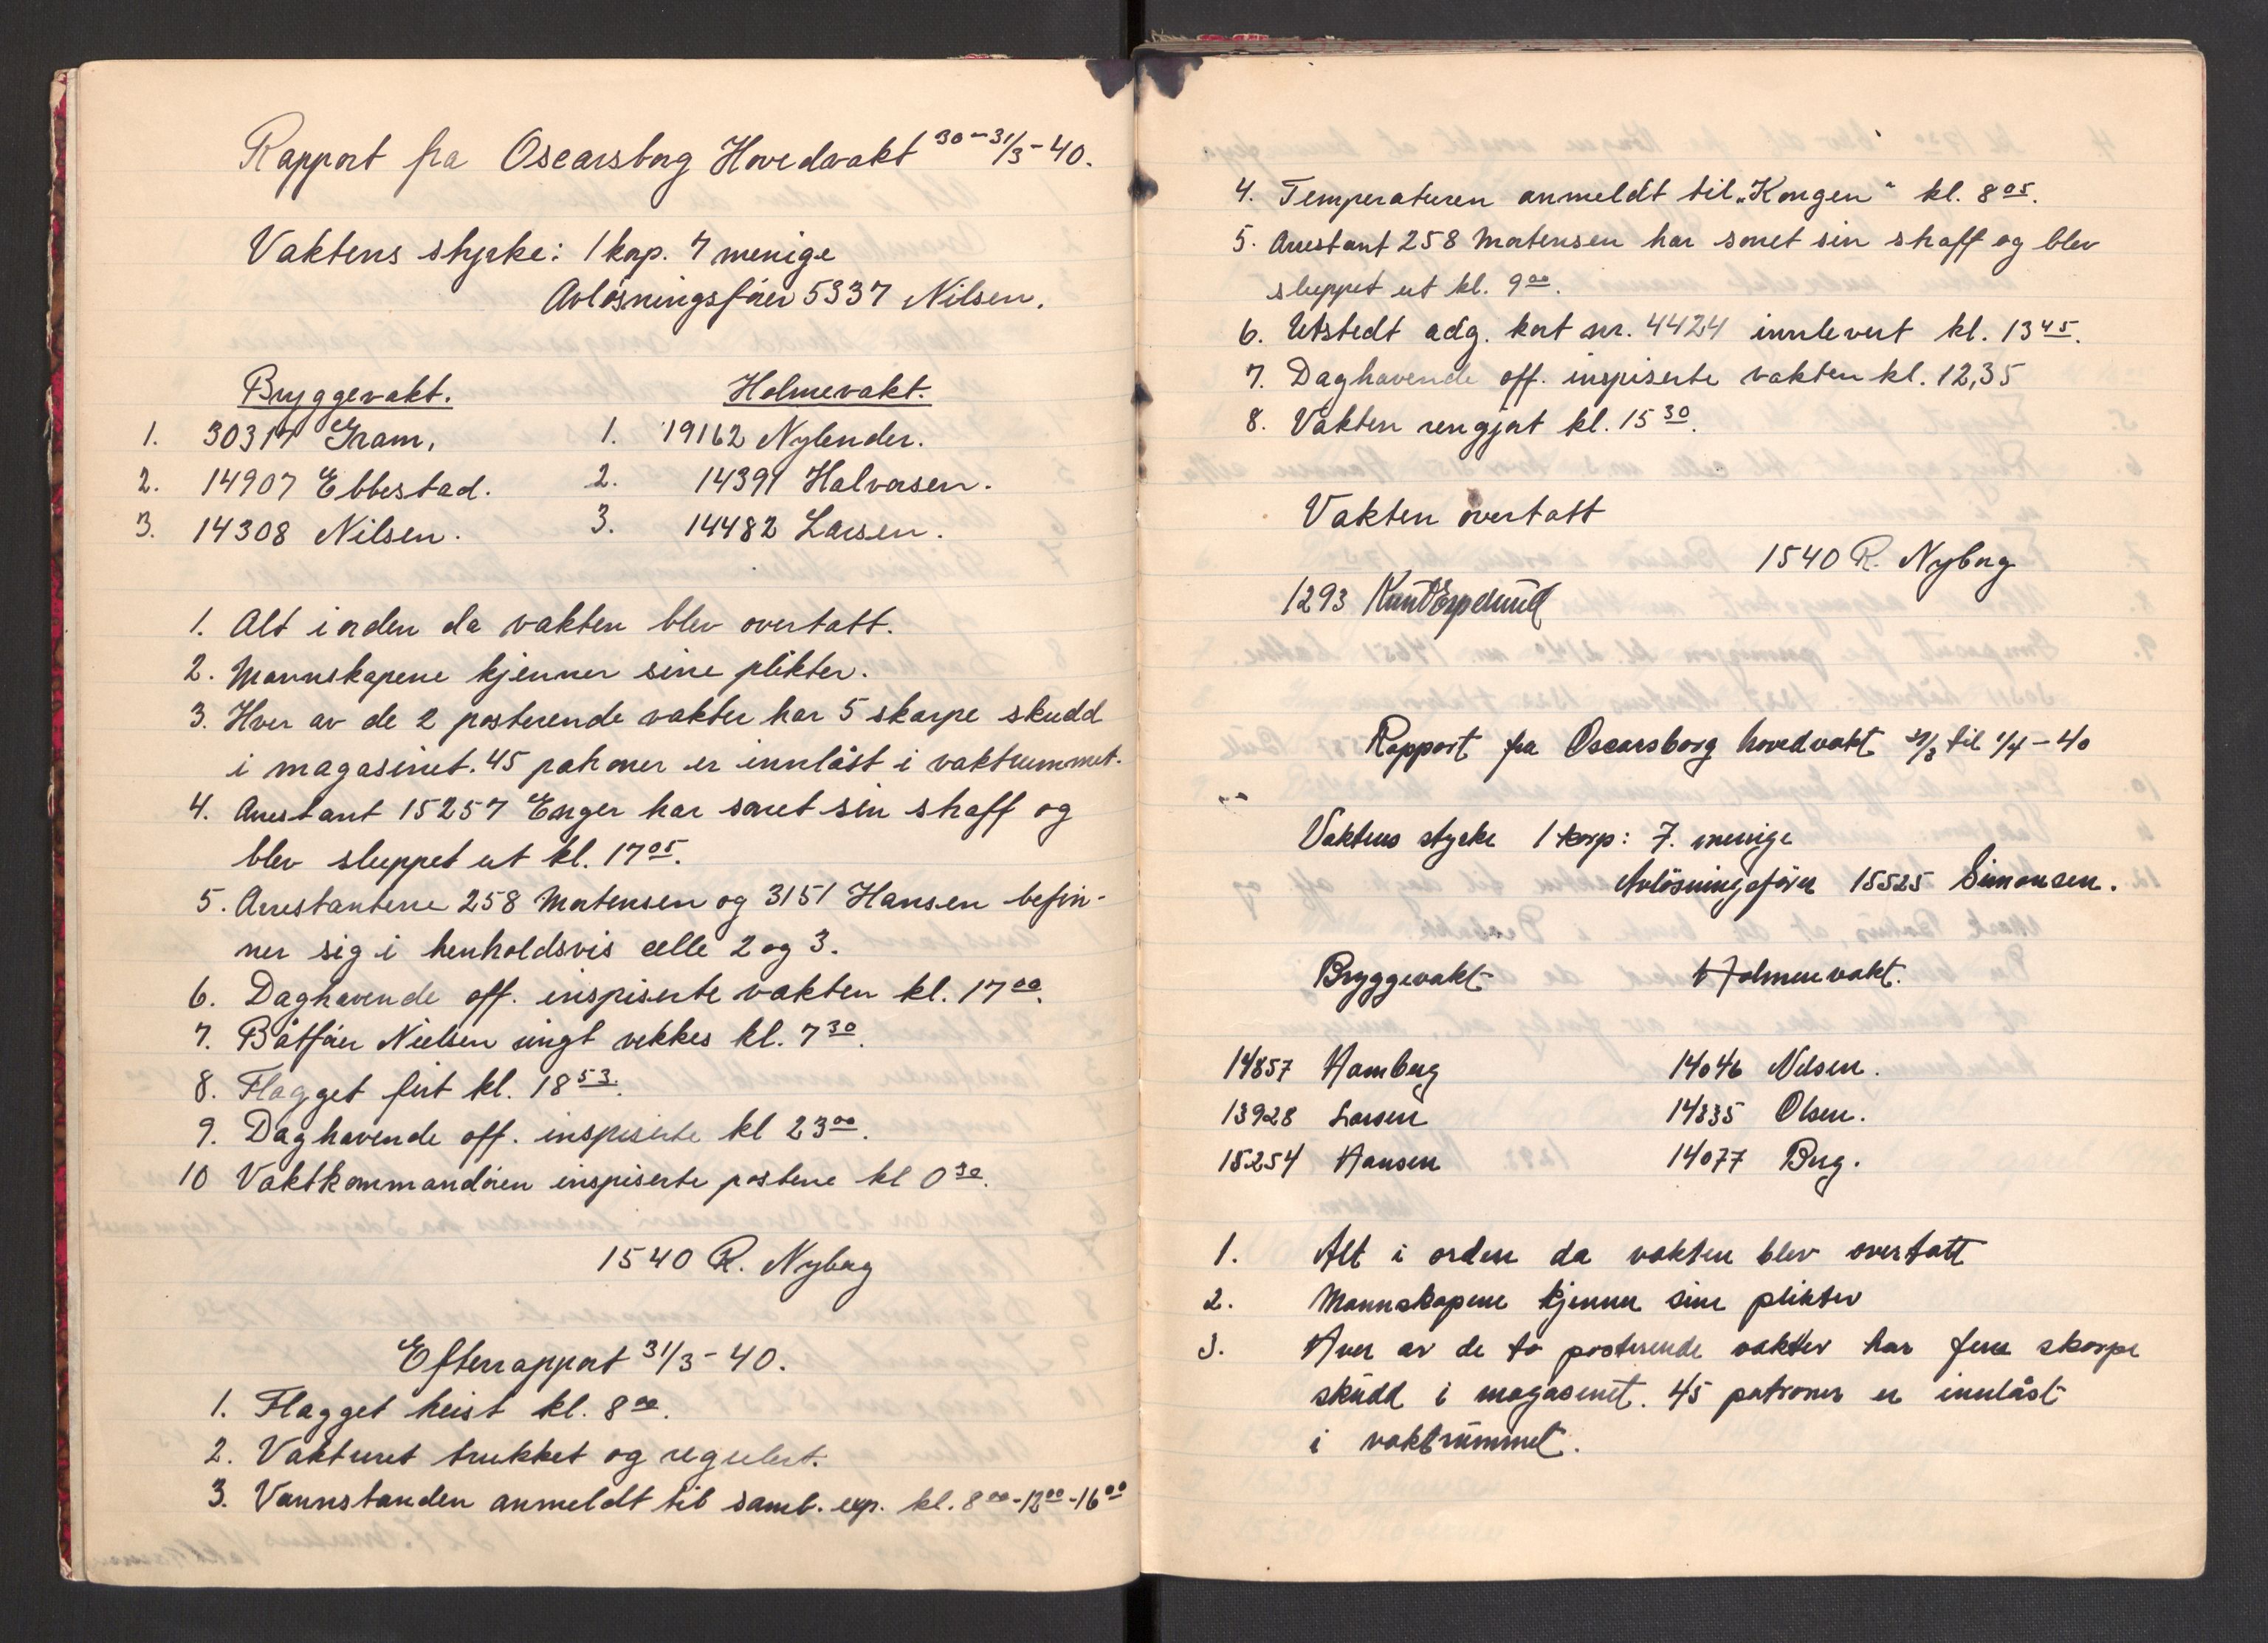 Rapport fra Oscarsborg Hovedvakt 30-31/3-40.
Vaktens styrke: 1 kop. 7 menige
Avløsningsfører 5337 Nilsen.
Bryggevakt. Holmevakt.
1. 30317 Gram, 1. 19162 Nylender.
2. 14907 Ebbestad. 2. 14391 Halvorsen.
3. 14308 Nilsen. 3. 14482 Larsen.
1. Alt i orden da vakten blev overtatt.
2. Mannskapene kjenner sine plikter.
3. Hver av de 2 posterende vakter har 5 skarpe skudd
i magasinet. 45 patroner er innlåst i vaktrummet.
4. Arrestant 15257 Enger har sonet sin straff og
blev sluppet ut kl. 17 05.
5. Arrestantene 258 Mortensen og 3151 Hansen befin-
ner sig i henholdsvis celle 2 og 3.
6. Daghavende off. inspiserte vakten kl. 17 00.
7. Båtfører Nielsen vekkes kl. 7 30.
8. Flagget firt kl. 18 53.
9. Daghavende off. inspiserte kl 23 00.
10 Vaktkommandøren inspiserte postene kl 0 30.
1540 R. Nyborg
Efterrapport 31/3-40.
1. Flagget heist kl. 8 00.
2. Vakturet trukket og regulert.
3. Vannstanden anmeldt til samb. exp. kl. 8 00-12 00-16 00
4. Temperaturen anmeldt til „Kongen" kl. 8 05.
5. Arrestant 258 Mortensen har sonet sin straff og blev
sluppet ut kl. 9 00.
6. Utstedt adg. kort nr. 4424 innlevert kl. 13 45.
7. Daghavende off. inspiserte vakten kl. 12,35
8. Vakten rengjort kl. 15 30.
Vakten overtatt
1540 R. Nyborg
1293 Knut
Rapport fra Oscarsborg hovedvakt 31/3 til 1/4-40
Vaktens styrke 1 korp: 7. menige
Avlösningsförer 15525 Simonsen.
Bryggevakt Holmenvakt.
14857 Hamberg 14046 Nilsen.
13928 Larsen 14335 Olsen.
15254 Hansen 14077 Berg.
1. Alt i orden da vakten blev overtatt
2. Mannskapene kjenner sine plikter
3. Hver av de to posterende vakter har fem skarpe
skudd i magasinet. 45 patroner er innlåst
i vaktrummet.